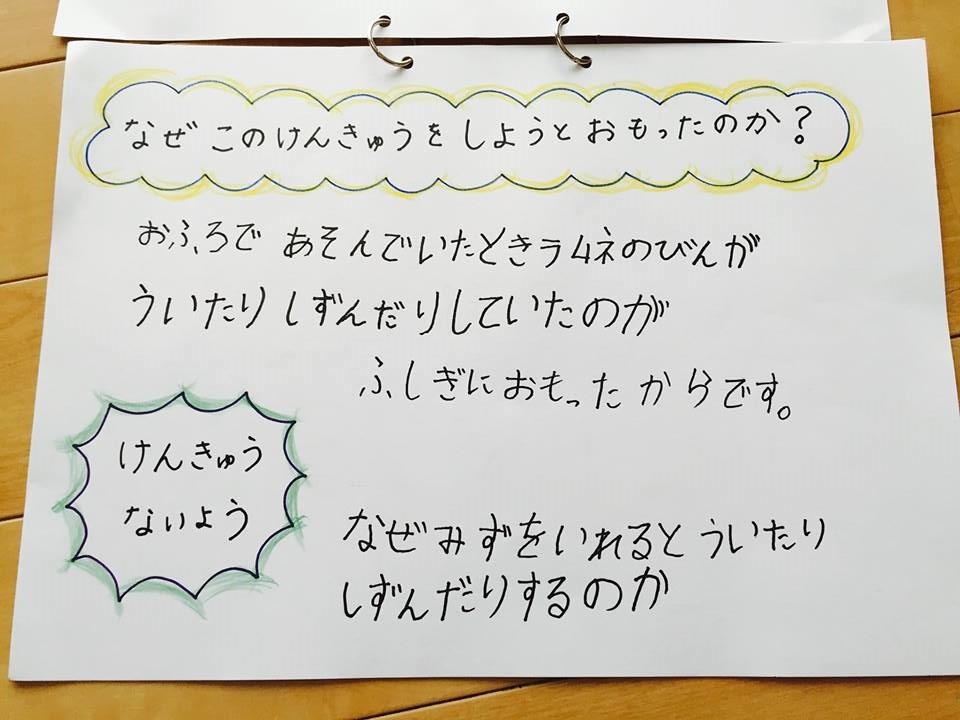 なぜ このけんきゅうを しようと おもったのか？
おふろで あそんでいたときラムネのびんが
ういたり しずんだりしていたのが
ふしぎにおもったからです。
けんきゅう
ないよう
なぜみずをいれると ういたり
しずんだりするのか